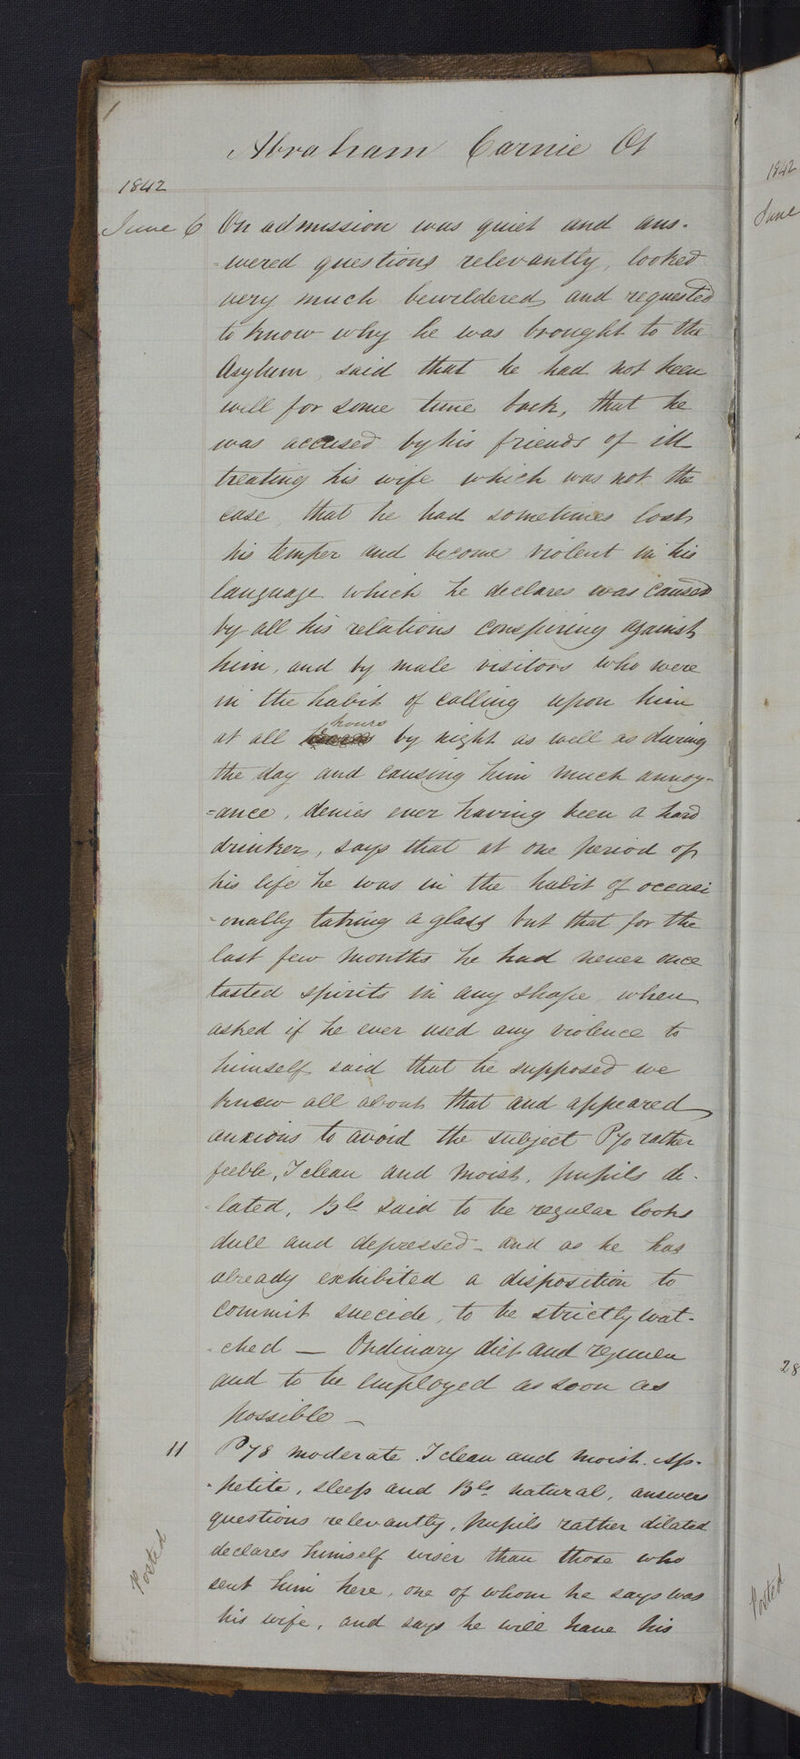 1
Abraham Carnie Ot
1842
June 6 On admission was quiet and ans-
-wered questions relevantly, looked
very much bewildered and requested
to know why he was brought to the
Asylum, said that he had not been
well for some time back, that he
was accused by his friends of ill
treating his wife which was not the
case, that he had sometimes lost
his temper and become violent in his
language which he declares was caused
by all his relations conspiring against
him, and by male visitors who were
in the habit of calling upon him
at all hours by night as well as during
the day and causing him much annoy-
=ance, denies ever having been a hard
drinker, says that at one period of
his life he was in the habit of occasi
-onally taking a glass but that for the
last few months he had never once
tasted spirits in any shape when
asked if he ever used any violence to
himself said that he supposed we
knew all about that and appeared
anxious to avoid the subject P70 rather
feeble, T clean and moist, pupils di-
-lated, Bls said to be regular looks
dull and depressed - and as he has
already exhibited a disposition to
commit suecide, to be strictly wat-
-ched — Ordinary diet and regimen
and to be employed as soon as
possible —
11 P78 moderate. T clean and moist. Ap-
-petite, sleep and Bls natural, answers
questions relevantly, pupils rather dilated
declares himself wiser than those who
sent him here, one of whom he says was
his wife, and says he will have his
Posted
1842
June
28
Posted